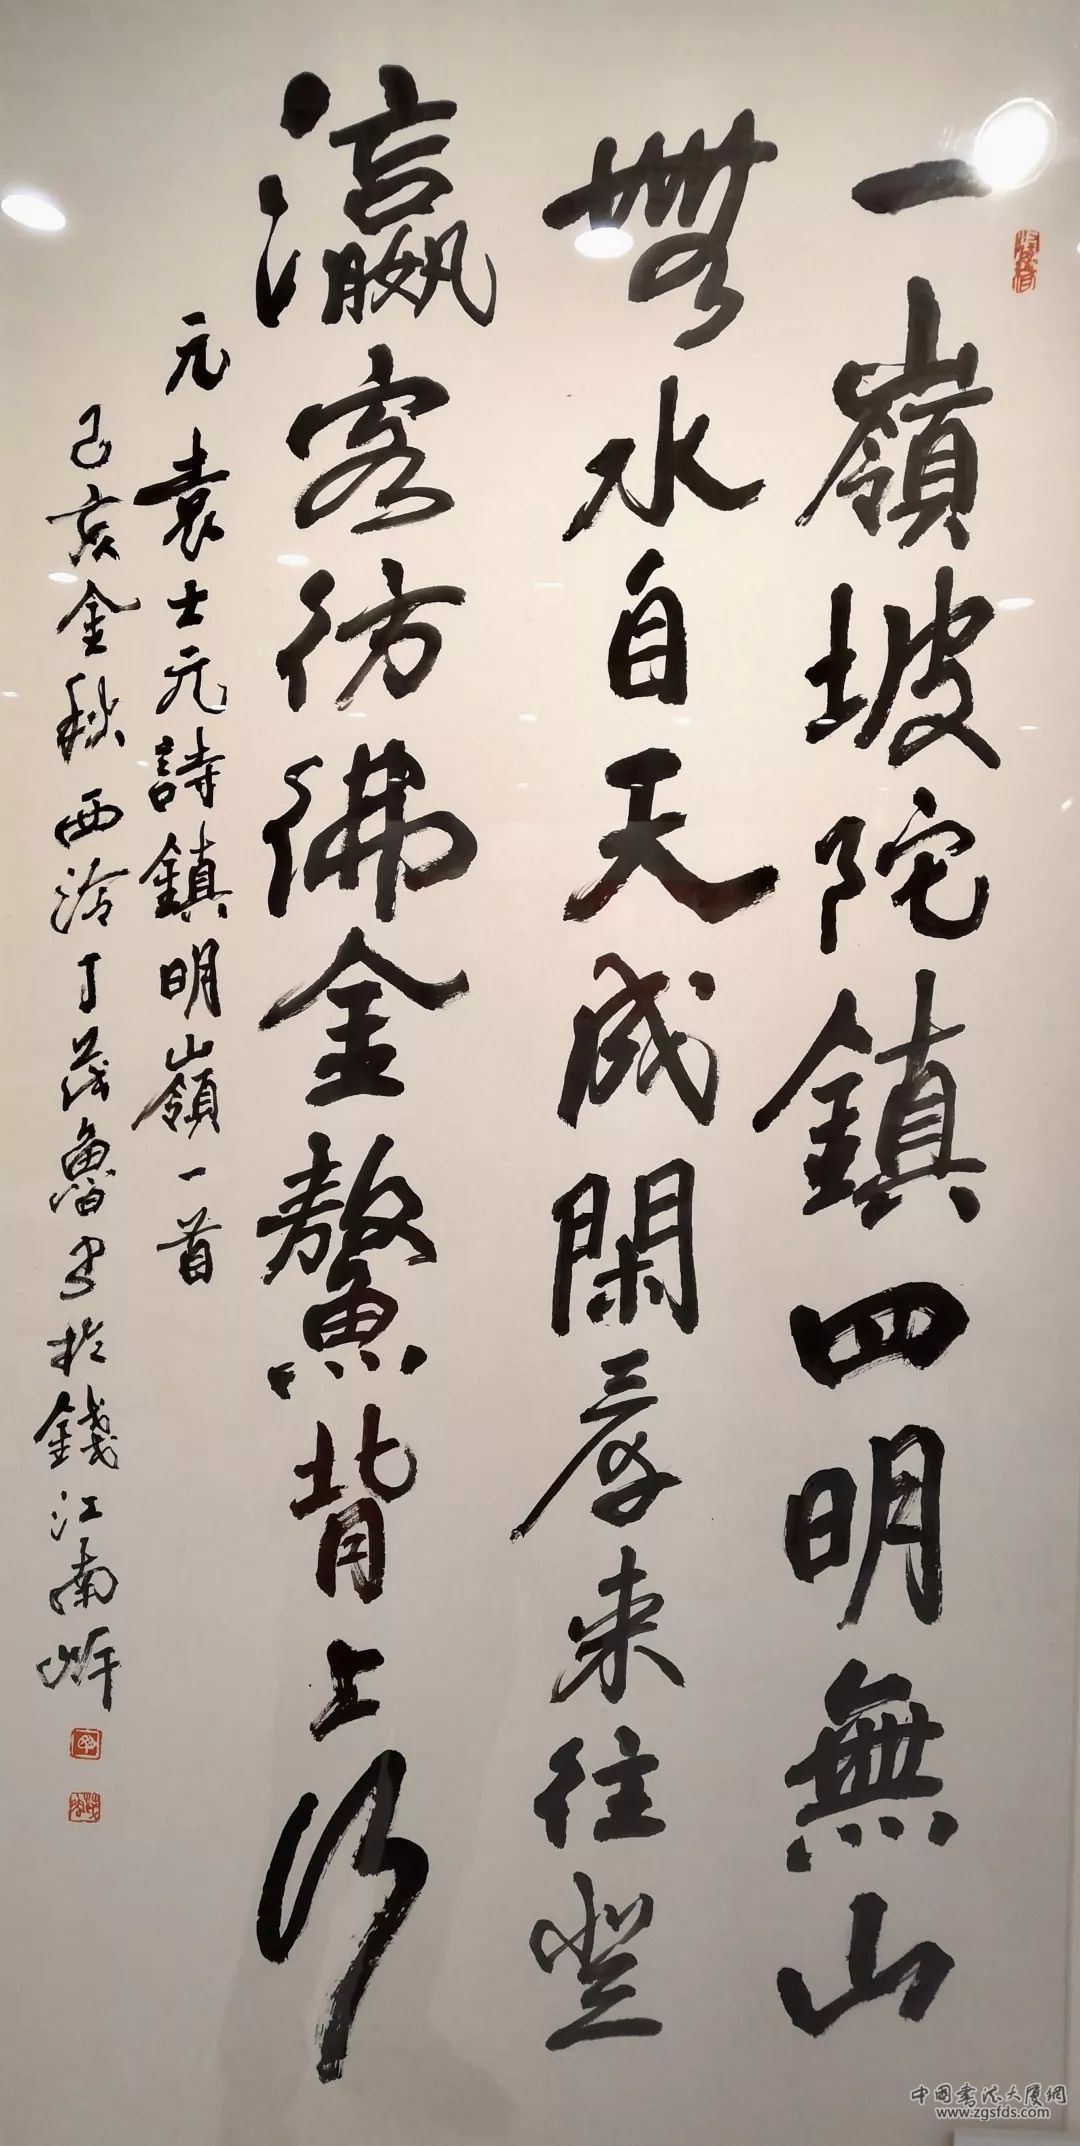 一嶺坡陀鎮四明無山
無水自天成閑尋来往登
瀛客彷彿金鰲背上行
元袁士元詩鎮明嶺一首
己亥金秋西泠丁茂魯書於錢江南岸
中国书法大厦網
www.zgsfds.com